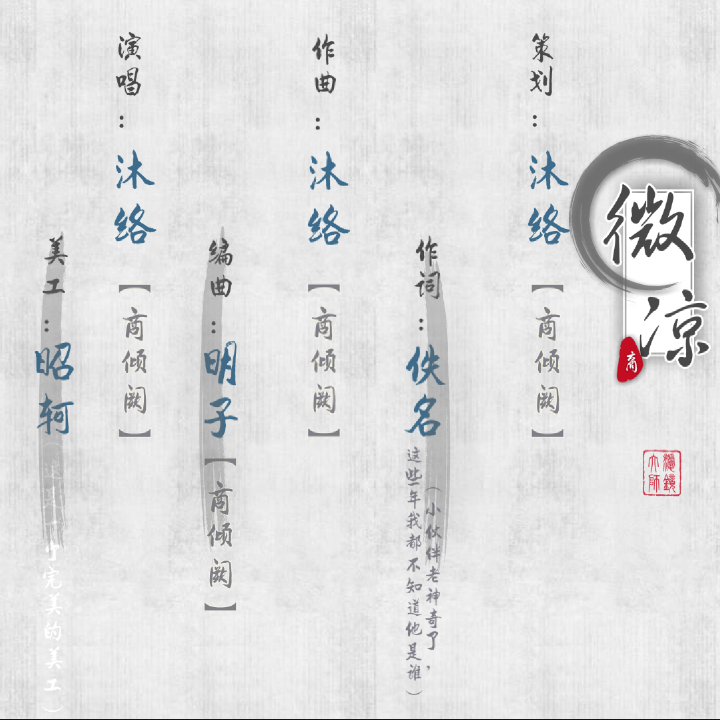 微凉
商
策划：沐络【商倾阙】
作词：佚名
（小伙伴老神奇了，
这些年我都不知道他是谁）
作曲：沐络【商倾阙】
编曲：明子【商倾阙】
演唱：沐络【商倾阙】
美工：昭轲
完美的美工）